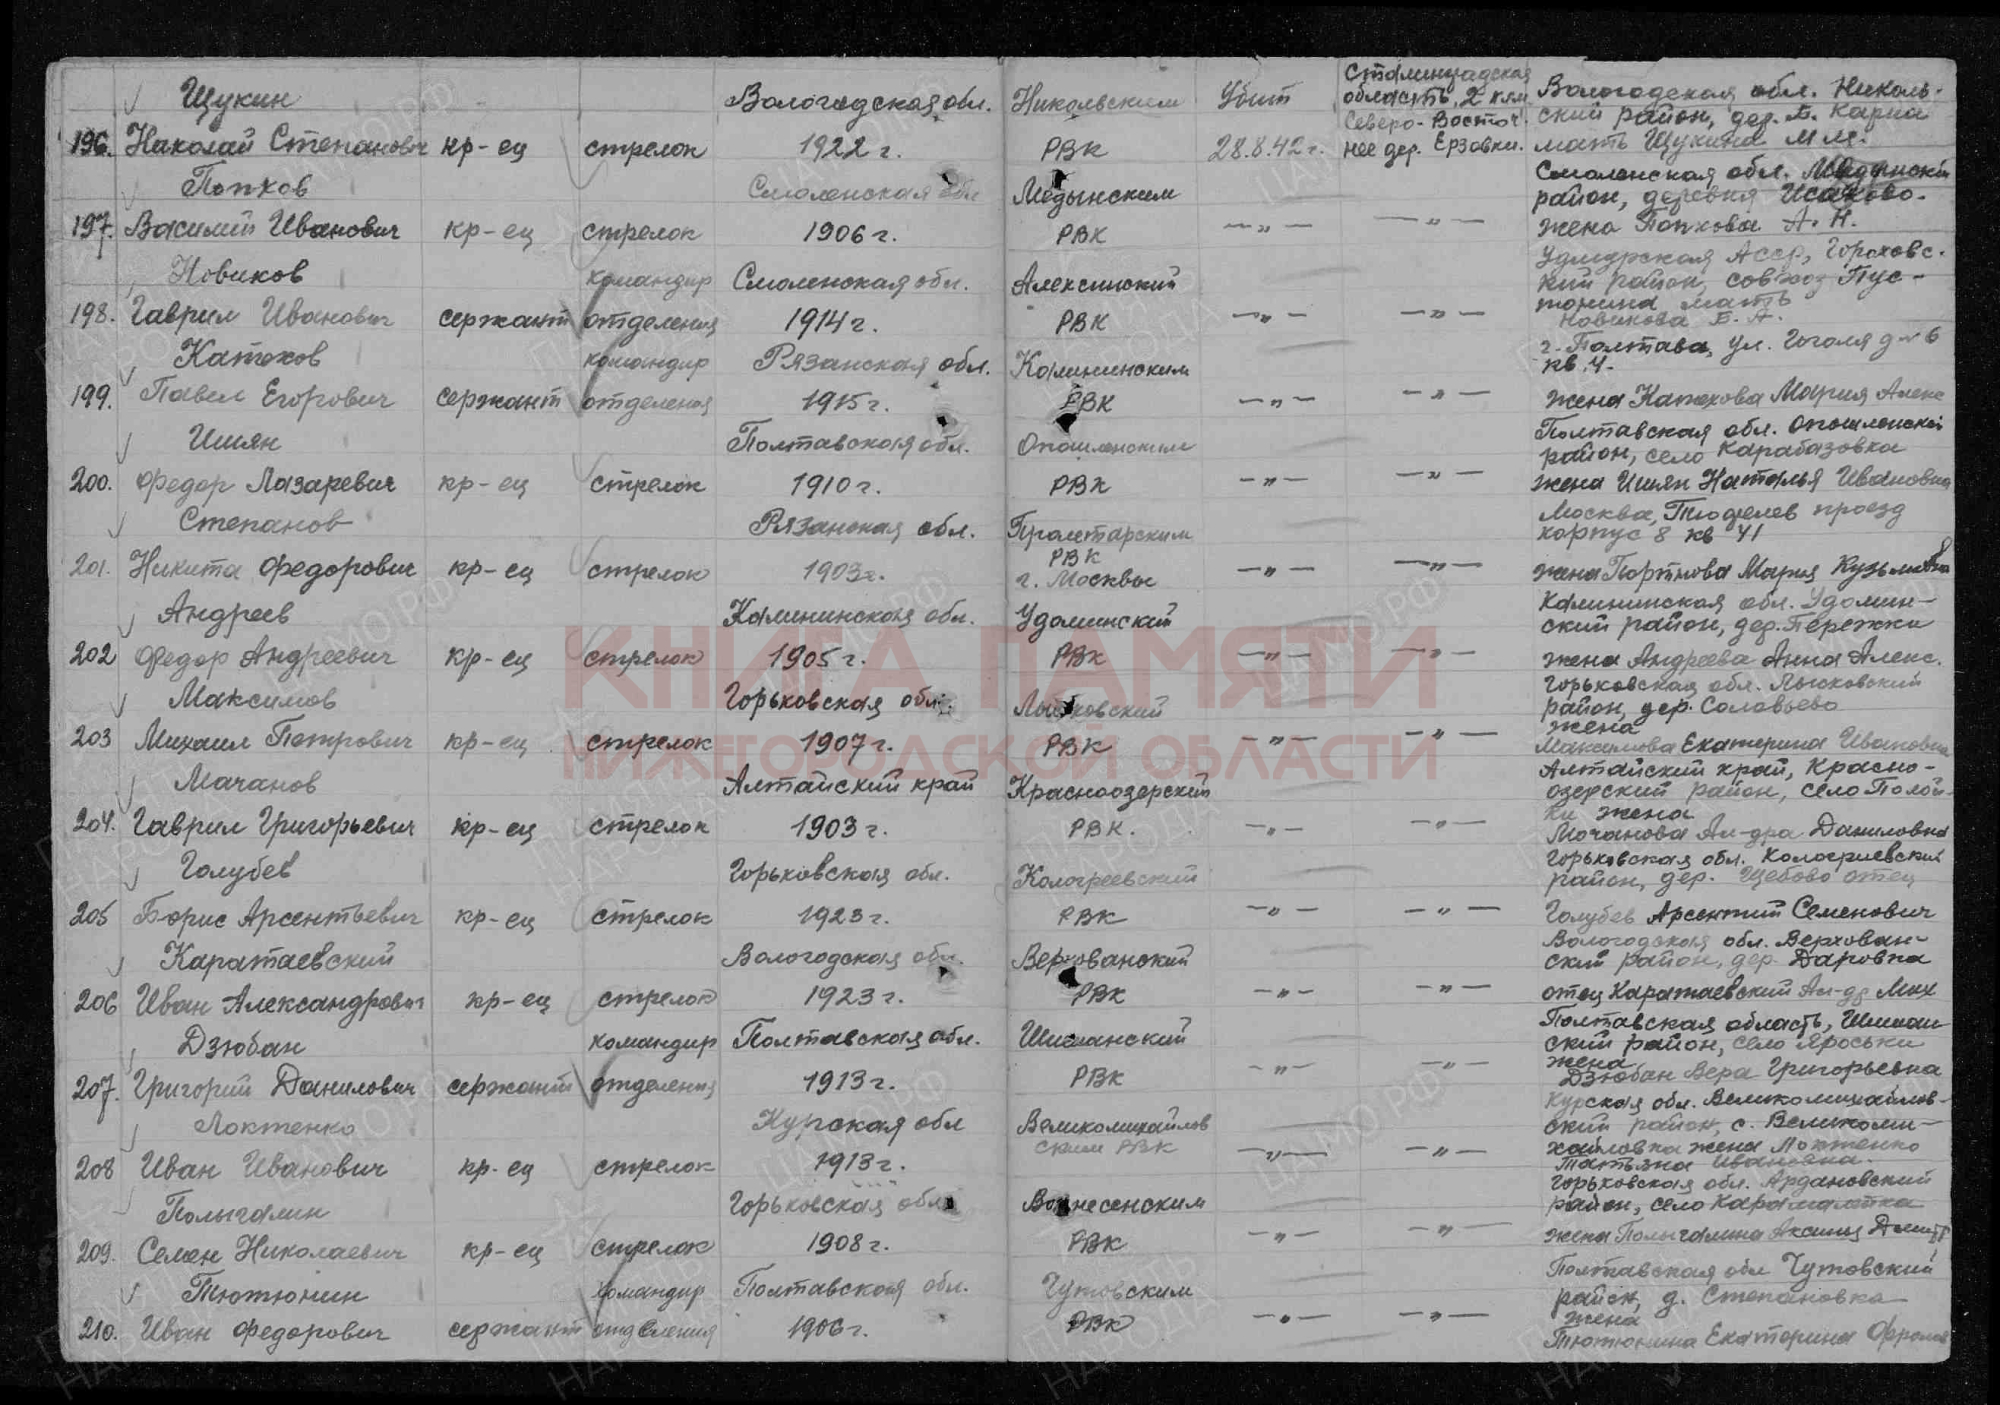 Щукин Вологодская обл. Никольским Убит Сталинградская область, 2 клм. Северо-Восточнее дер. Ерзовки. Вологодская обл. Николь-
196. Николай Степанович кр-ец стрелок 1922 г. РВК 28.8.42 г. ский район, дер. Б. Карна
мать Щукина М.М.
Попков Смоленская обл Медынским Смоленская обл. Медынский
район, деревня Исаково.
197. Василий Иванович кр-ец стрелок 1906 г. РВК —„— —„— жена Попкова А. Н.
Новиков командир Смоленская обл. Алексинский Удмурская Асср, Гороховс-
кий район, совхоз Пус-
198. Гаврил Иванович сержант отделения 1914 г. РВК —„— —„— мать
Новикова Е. А.
Катохов командир Рязанская обл. Калининским г. Полтава, ул. Гоголя д № 6
кв. 4.
199. Павел Егорович сержант отделения 1915 г. РВК —„— —„— жена Катохова Мария Алекс
Ишян Полтавская обл. Опошленским Полтавская обл. Опошленский
район, село Карабазовка
200. Федор Лазаревич кр-ец стрелок 1910 г. РВК —„— —„— жена Ишян Наталья Ивановна
Степанов Рязанская обл. Пролетарским Москва, Тюфелев проезд
корпус 8 кв 41
201. Никита Федорович кр-ец стрелок 1903 г. РВК г. Москвы —„— —„— жена Портнова Мария Кузьминна
Андреев Калининская обл. Удомлинский Калининская обл. Удомлин-
ский район, дер. Пережки
202 Федор Андреевич кр-ец стрелок 1905 г. РВК —„— —„— жена Андреева Анна Алекс.
Максимов Горьковская обл. Лысковский Горьковская обл. Лысковский
район, дер. Соловьево
жена
203 Михаил Петрович кр-ец стрелок 1907 г. РВК —„— —„— Максимова Екатерина Ивановна
Мачанов Алтайский край Красноозерский Алтайский край, Красно-
озерский район, село Полой-
ки жена
204. Гаврил Григорьевич кр-ец стрелок 1903 г. РВК. —„— —„— Мочанова Ал-дра Даниловна
Голубев Горьковская обл. Кологреевский Горьковская обл. Кологриевский
район, дер. Щебово отец
205 Борис Арсентьевич кр-ец стрелок 1923 г. РВК —„— —„— Голубев Арсентий Семенович
Каратаевский Вологодская обл. Верхованский Вологодская обл. Верхован-
ский район, дер. Даровка
206 Иван Александрович кр-ец стрелок 1923 г. РВК —„— —„— отец Каратаевский Ал-др Мих
Дзюбан командир Полтавская обл. Шишанский Полтавская область, Шишан-
ский район, село Яроськи
жена
207. Григорий Данилович сержант отделения 1913 г. РВК —„— —„— Дзюбан Вера Григорьевна
Локтенко Курская обл Великомихайлов Курская обл. Великомихайлов-
ским РВК ский район, с. Великоми-
208 Иван Иванович кр-ец стрелок 1913 г. —„— —„— хайловка жена Локтенко
Татьяна Ивановна.
Полыгалин Горьковская обл. Вознесенским Горьковская обл. Ардановский
район, село Карамалетка
209. Семен Николаевич кр-ец стрелок 1908 г. РВК —„— —„— жена Полыгалина Аксинья Дмитр
Тютюнин командир Полтавская обл. Чутовским Полтавская обл Чутовский
район, д. Степановка
жена
210. Иван Федорович сержант отделения 1906 г. РВК —„— —„— Тютюнина Екатерина Фролов
КНИГА ПАМЯТИ
НИЖЕГОРОДСКОЙ ОБЛАСТИ